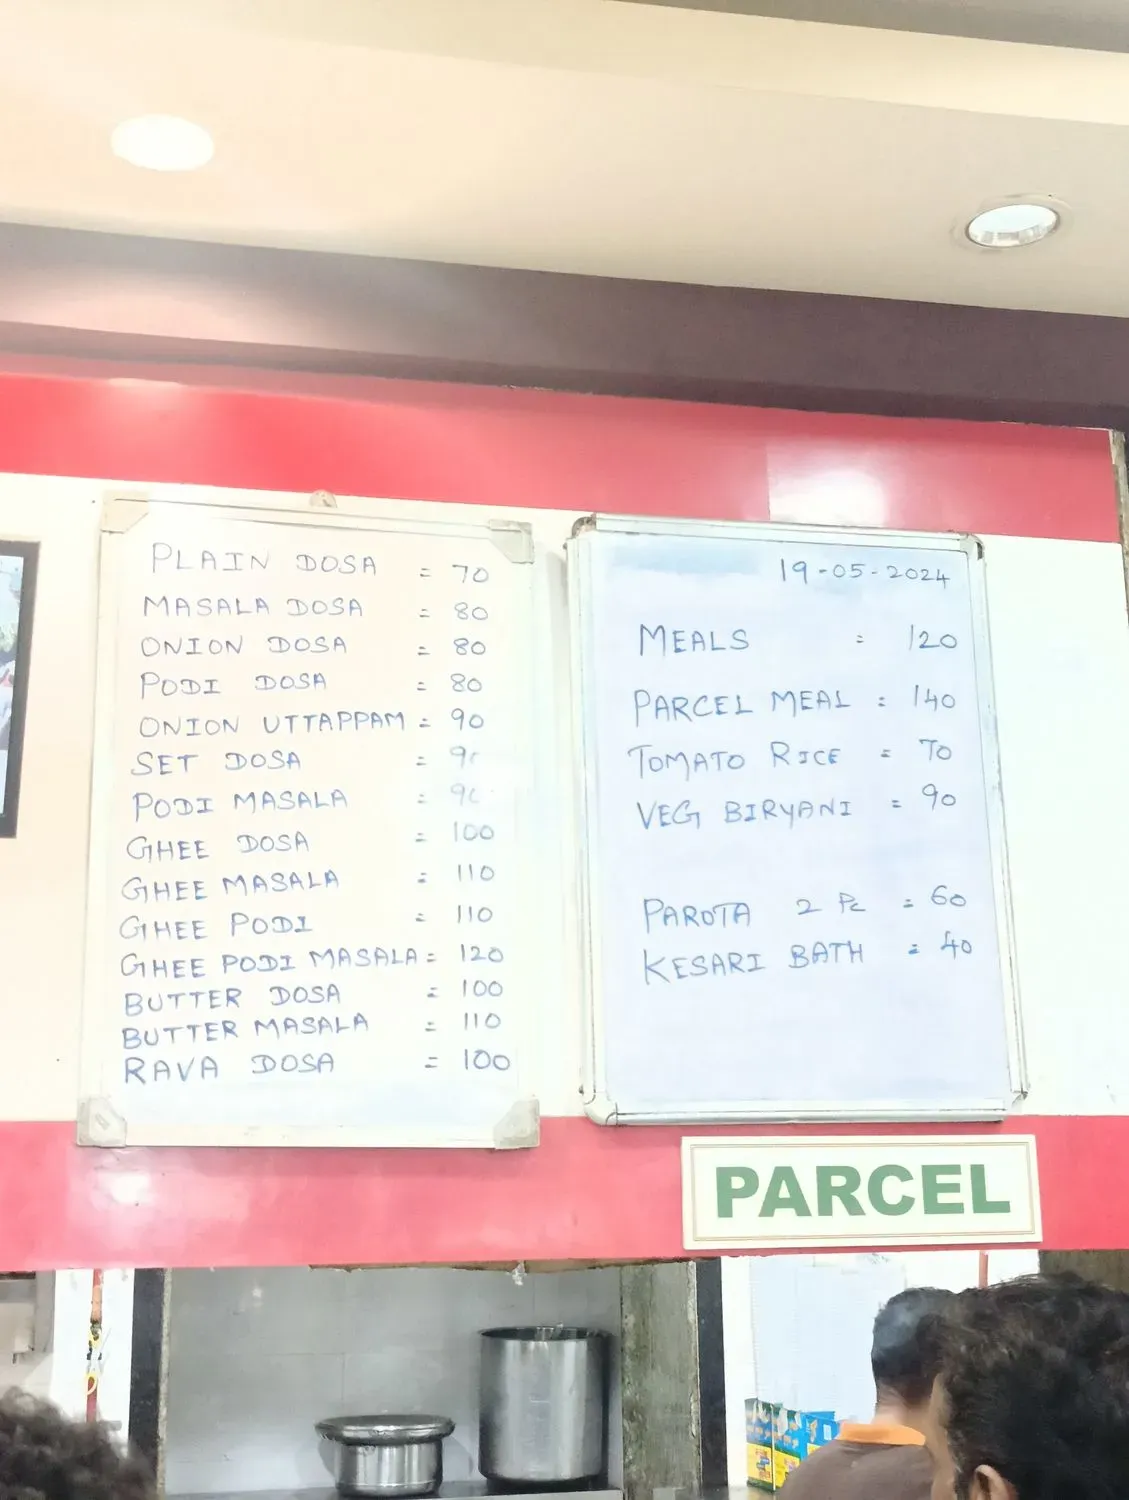 PLAIN DOSA = 70
MASALA DOSA = 80
ONION DOSA = 80
PODI DOSA = 80
ONION UTTAPPAM = 90
SET DOSA = 9
PODI MASALA = 9
GHEE DOSA = 100
GHEE MASALA = 110
GHEE PODI = 110
GHEE PODI MASALA = 120
BUTTER DOSA = 100
BUTTER MASALA = 110
RAVA DOSA = 100
19-05-2024
MEALS = 120
PARCEL MEAL = 140
TOMATO RICE = 70
VEG BIRYANI = 90
PAROTA 2 Pc = 60
KESARI BATH = 40
PARCEL